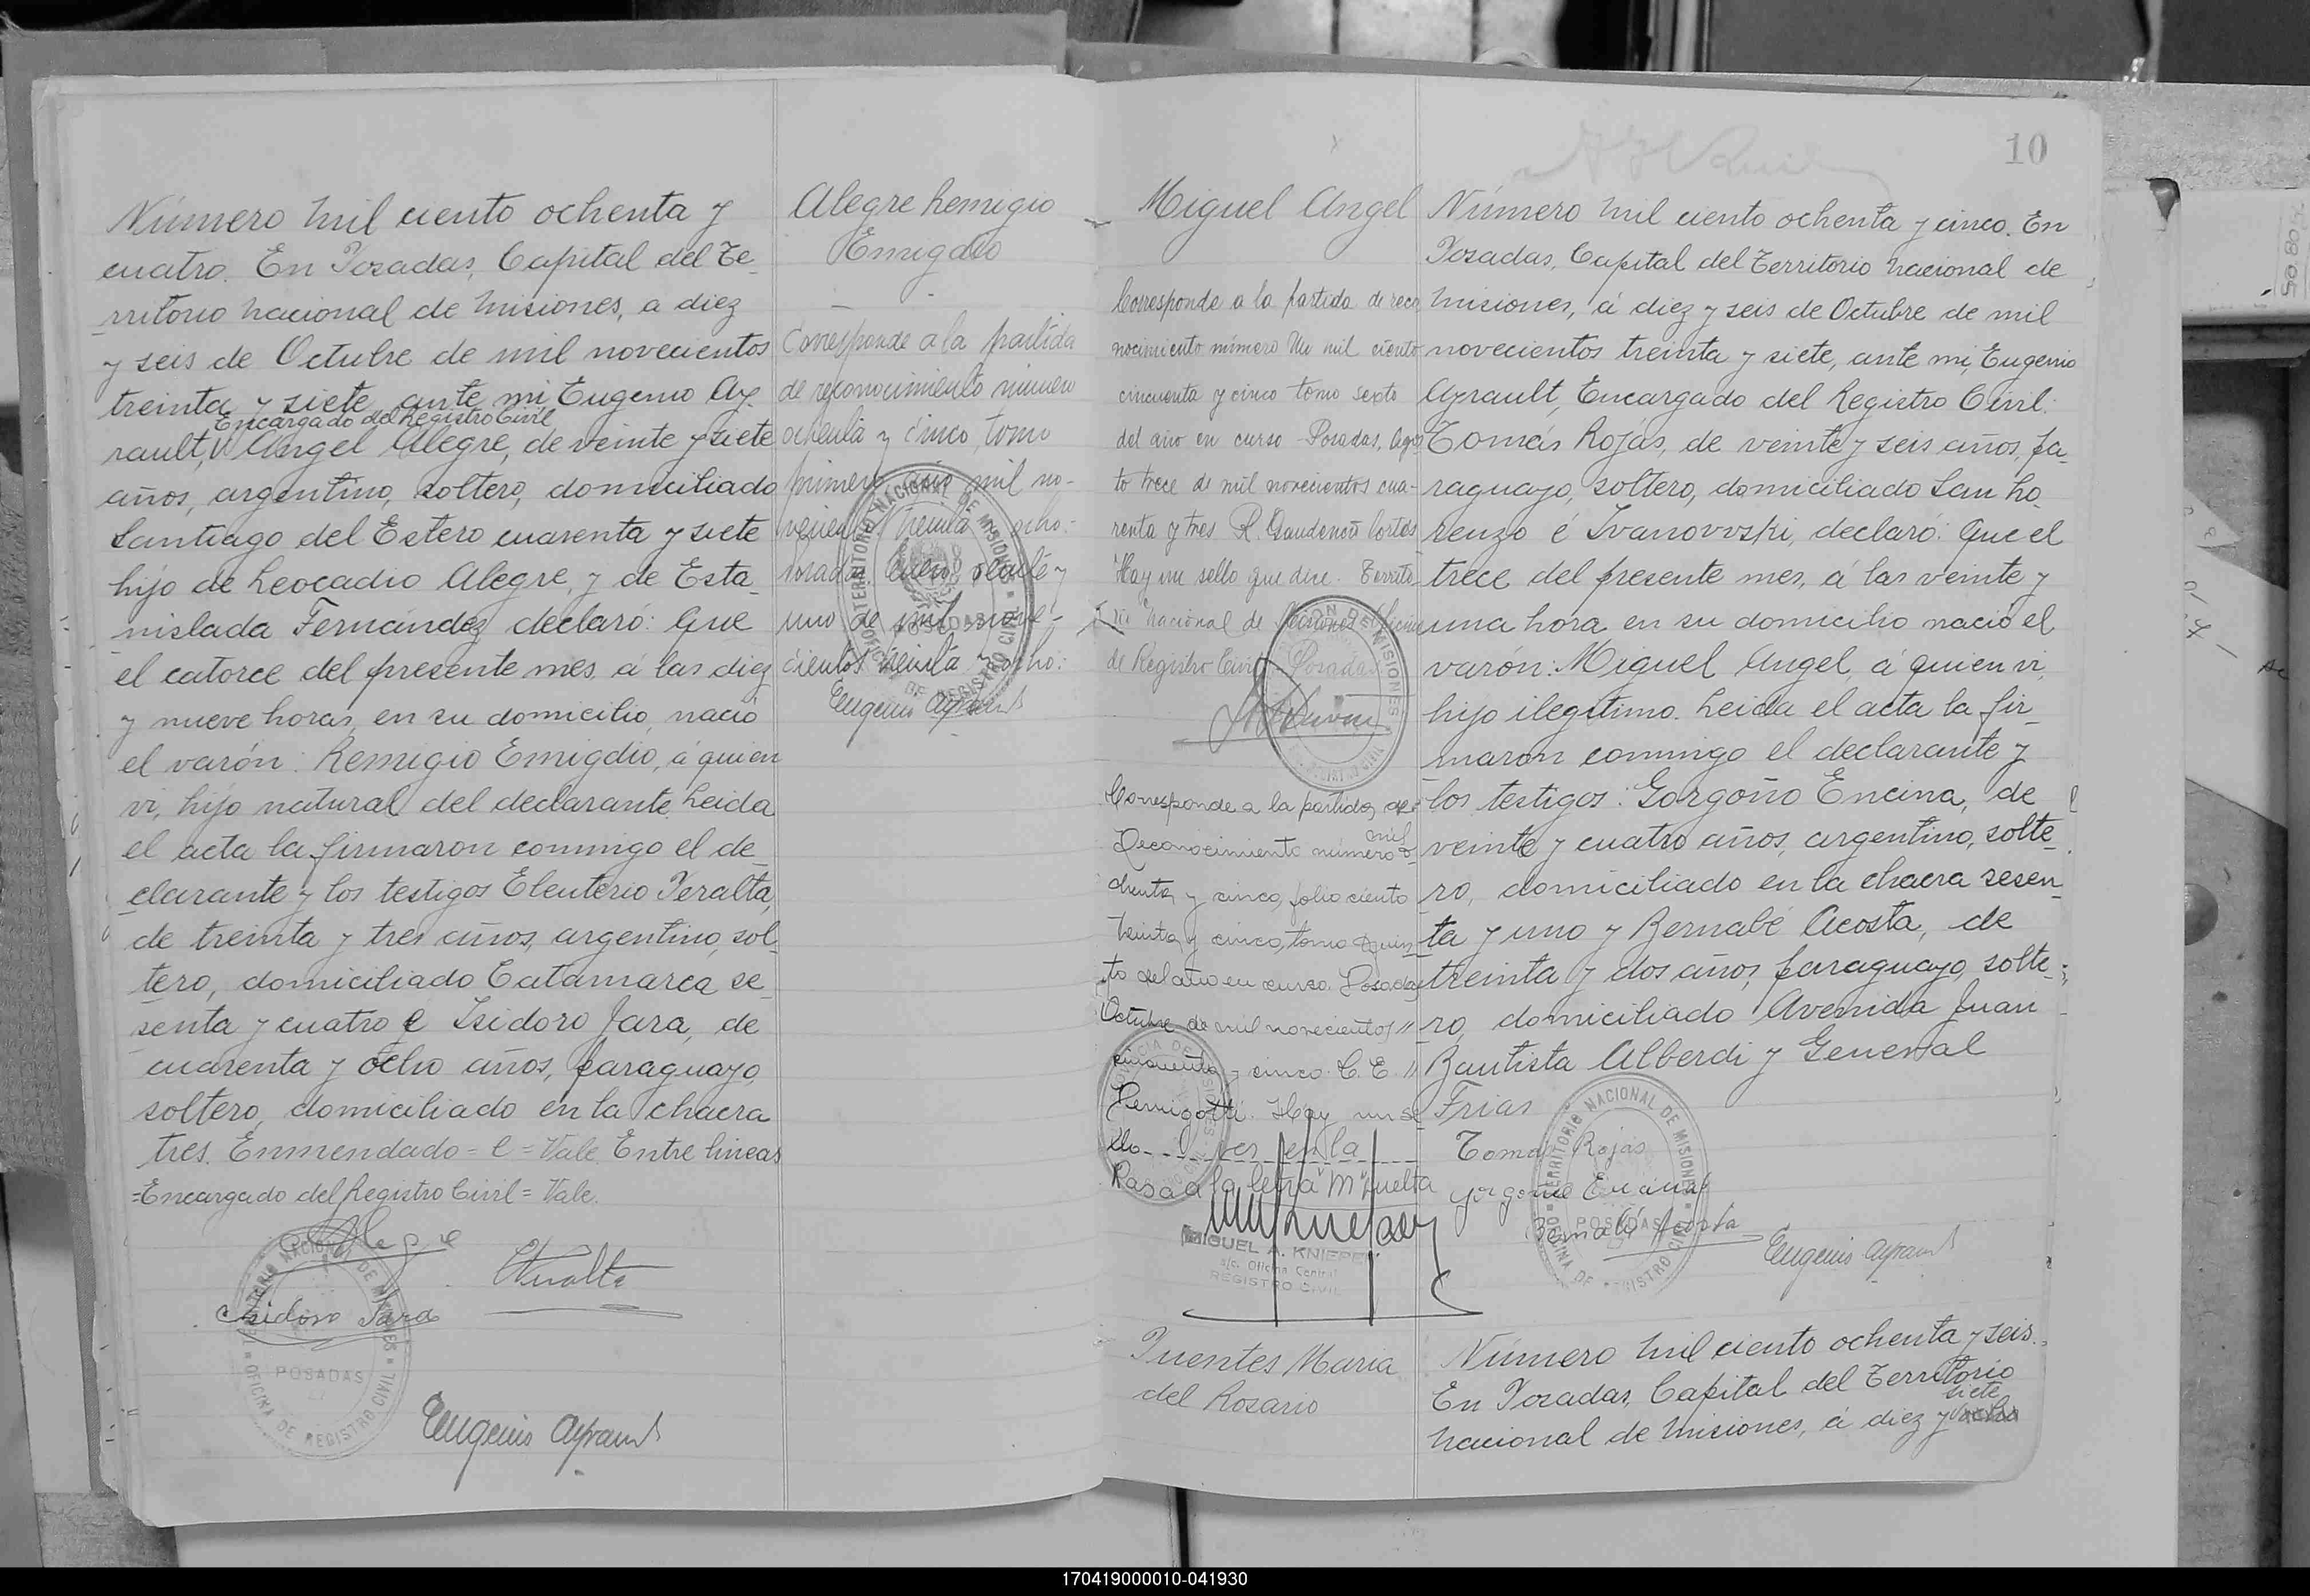 Número mil ciento ochenta y
cuatro. En Posadas, Capital del Te-
rritorio Nacional de Misiones, a diez
y seis de Octubre de mil novecientos
treinta y siete, ante mi, Eugenio Ay-
Encargado del Registro Civil
rault, Angel Alegre, de veinte y siete
años, argentino, soltero, domiciliado
Santiago del Estero cuarenta y siete
hijo de Leocadio Alegre, y de Esta-
nislada Fernández declaró: Que
el catorce del presente mes, á las diez
y nueve horas, en su domicilio, nació
el varón: Remigio Emigdio, á quien
vi, hijo natural del declarante. Leida
el acta la firmaron conmigo el de-
clarante y los testigos Eleuterio Peralta,
de treinta y tres años, argentino, sol-
tero, domiciliado Catamarca se-
senta y cuatro e Isidoro Jara, de
cuarenta y ocho años, paraguayo,
soltero, domiciliado en la chacra
tres. Enmendado = e = Vale. Entre lineas
=Encargado del Registro Civil = Vale.
Alegre
Peralta
Isidoro Jara
TERRITORIO NACIONAL DE MISIONES
POSADAS
OFICINA DE REGISTRO CIVIL
Eugenio Ayrault
Alegre Remigio
Emigdio
Corresponde a la partida
de reconocimiento número
ochenta y cinco, tomo
primero, año mil no-
treinta ocho:
Posadas, y
uno de mil nove-
cientos treinta y ocho:
Eugenio Ayrault
TERRITORIO NACIONAL DE MISIONES
POSADAS
OFICINA DE REGISTRO CIVIL
10
Miguel Angel
Corresponde a la partida de reco-
nocimiento número mil ciento
cincuenta y cinco tomo sexto
del año en curso - Posadas, Agos-
to trece de mil novecientos cua-
renta y tres R. Gaudencio Cortés
Hay un sello que dice. Territo-
rio Nacional de Misiones Oficina
de Registro Civil Posadas
Corresponde a la partida de
mil
Reconocimiento número o-
chenta y cinco, folio ciento
treinta y cinco, tomo quin-
to del año en curso. Posadas
Octubre de mil novecientos
cincuenta y cinco. C. E.
Hay un se-
llo
Raspa la letra "M" Vuelta
MIGUEL A. KNIEPER
Oficina Central
REGISTRO CIVIL
Número mil ciento ochenta y cinco. En
Posadas, Capital del Territorio Nacional de
Misiones, á diez y seis de Octubre de mil
novecientos treinta y siete, ante mi, Eugenio
Ayrault, Encargado del Registro Civil:
Tomás Rojas, de veinte y seis años, pa-
raguayo, soltero, domiciliado San Lo-
renzo é Ivanovvski, declaró: Que el
trece del presente mes, á las veinte y
una hora, en su domicilio nació el
varón: Miguel Angel, á quien vi,
hijo ilegítimo. Leida el acta la fir-
maron conmigo el declarante y
los testigos: Gorgoño Encina, de
veinte y cuatro años, argentino, solte-
ro, domiciliado en la chacra sesen-
ta y uno y Bernabé Acosta, de
treinta y dos años, paraguayo, solte-
ro, domiciliado Avenida Juan
Bautista Alberdi y General
Frias
Tomas Rojas
Gorgoño Encina
Bernabé Acosta
Eugenio Ayrault
TERRITORIO NACIONAL DE MISIONES
POSADAS
OFICINA DE REGISTRO CIVIL
Fuentes Maria
del Rosario
Número mil ciento ochenta y seis.
En Posadas, Capital del Territorio
siete
Nacional de Misiones, á diez y
170419000010-041930